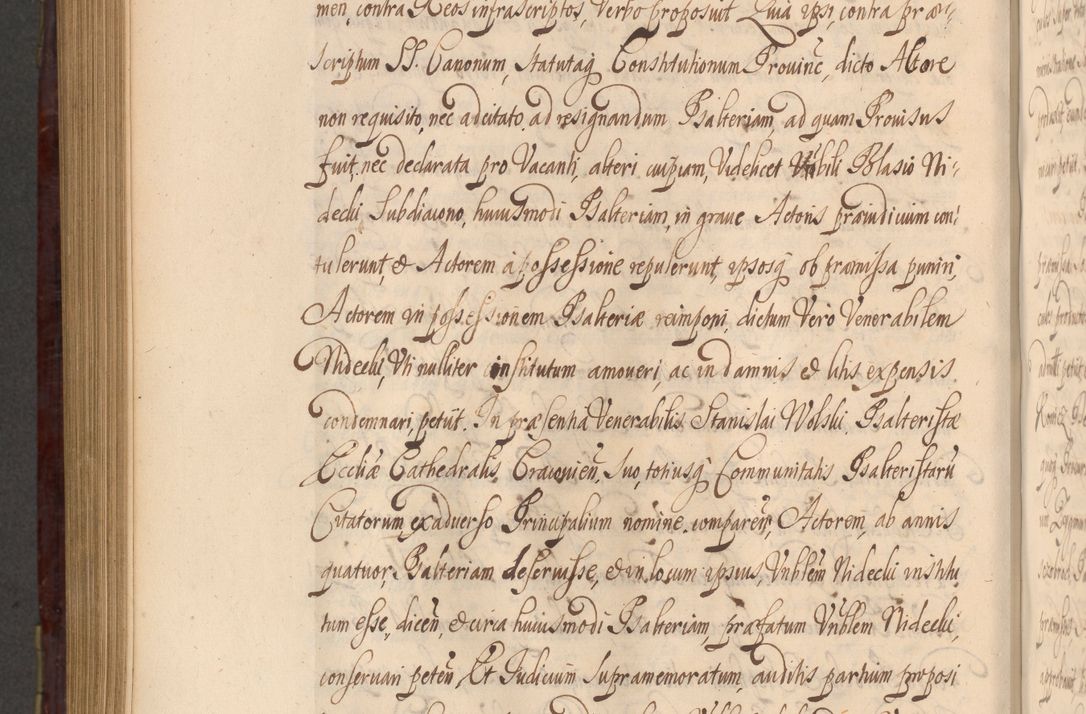 men, contra Reos infrascriptos, Verbo proposuit Quia ipsi, contra præ-
scriptum SS. Canonum, Statutaq Constitutionum Provinc, dicto Actore
non requisito, nec adcitato, ad resignandum Psalteriam, ad quam Provisus
fuit, nec declarata pro Vacanti, alteri cuipiam, Videlicet Vbili Blasio Ni-
decki Subdiacono, huiusmodi Psalteriam, in graue Actoris præiudicium con-
tulerunt, & Actorem à possessione repulerunt, ipsosq ob præmissa puniri,
Actorem in possessionem Psalteriæ reimponi, dictum Vero Venerabilem
Nidecki, Vti nulliter institutum amoueri, ac in damnis & litis expensis
condemnari, petijt. In præsentia Venerabilis Stanislai Wolski Psalteristæ
Eccliæ Cathedralis Cracouien, suo, totiusq Communitatis Psalteristarū
Citatorum, ex aduerso Principalium nomine comparen, Actorem, ab annis
quatuor, Psalteriam deseruisse, & in locum ipsius, Vnblem Nidecki institu
tum esse, dicen, & circa huiusmodi Psalteriam, præfatum Vnblem Nidecki,
conseruari peten, Et Iudicium supramemoratum, auditis partium proposi